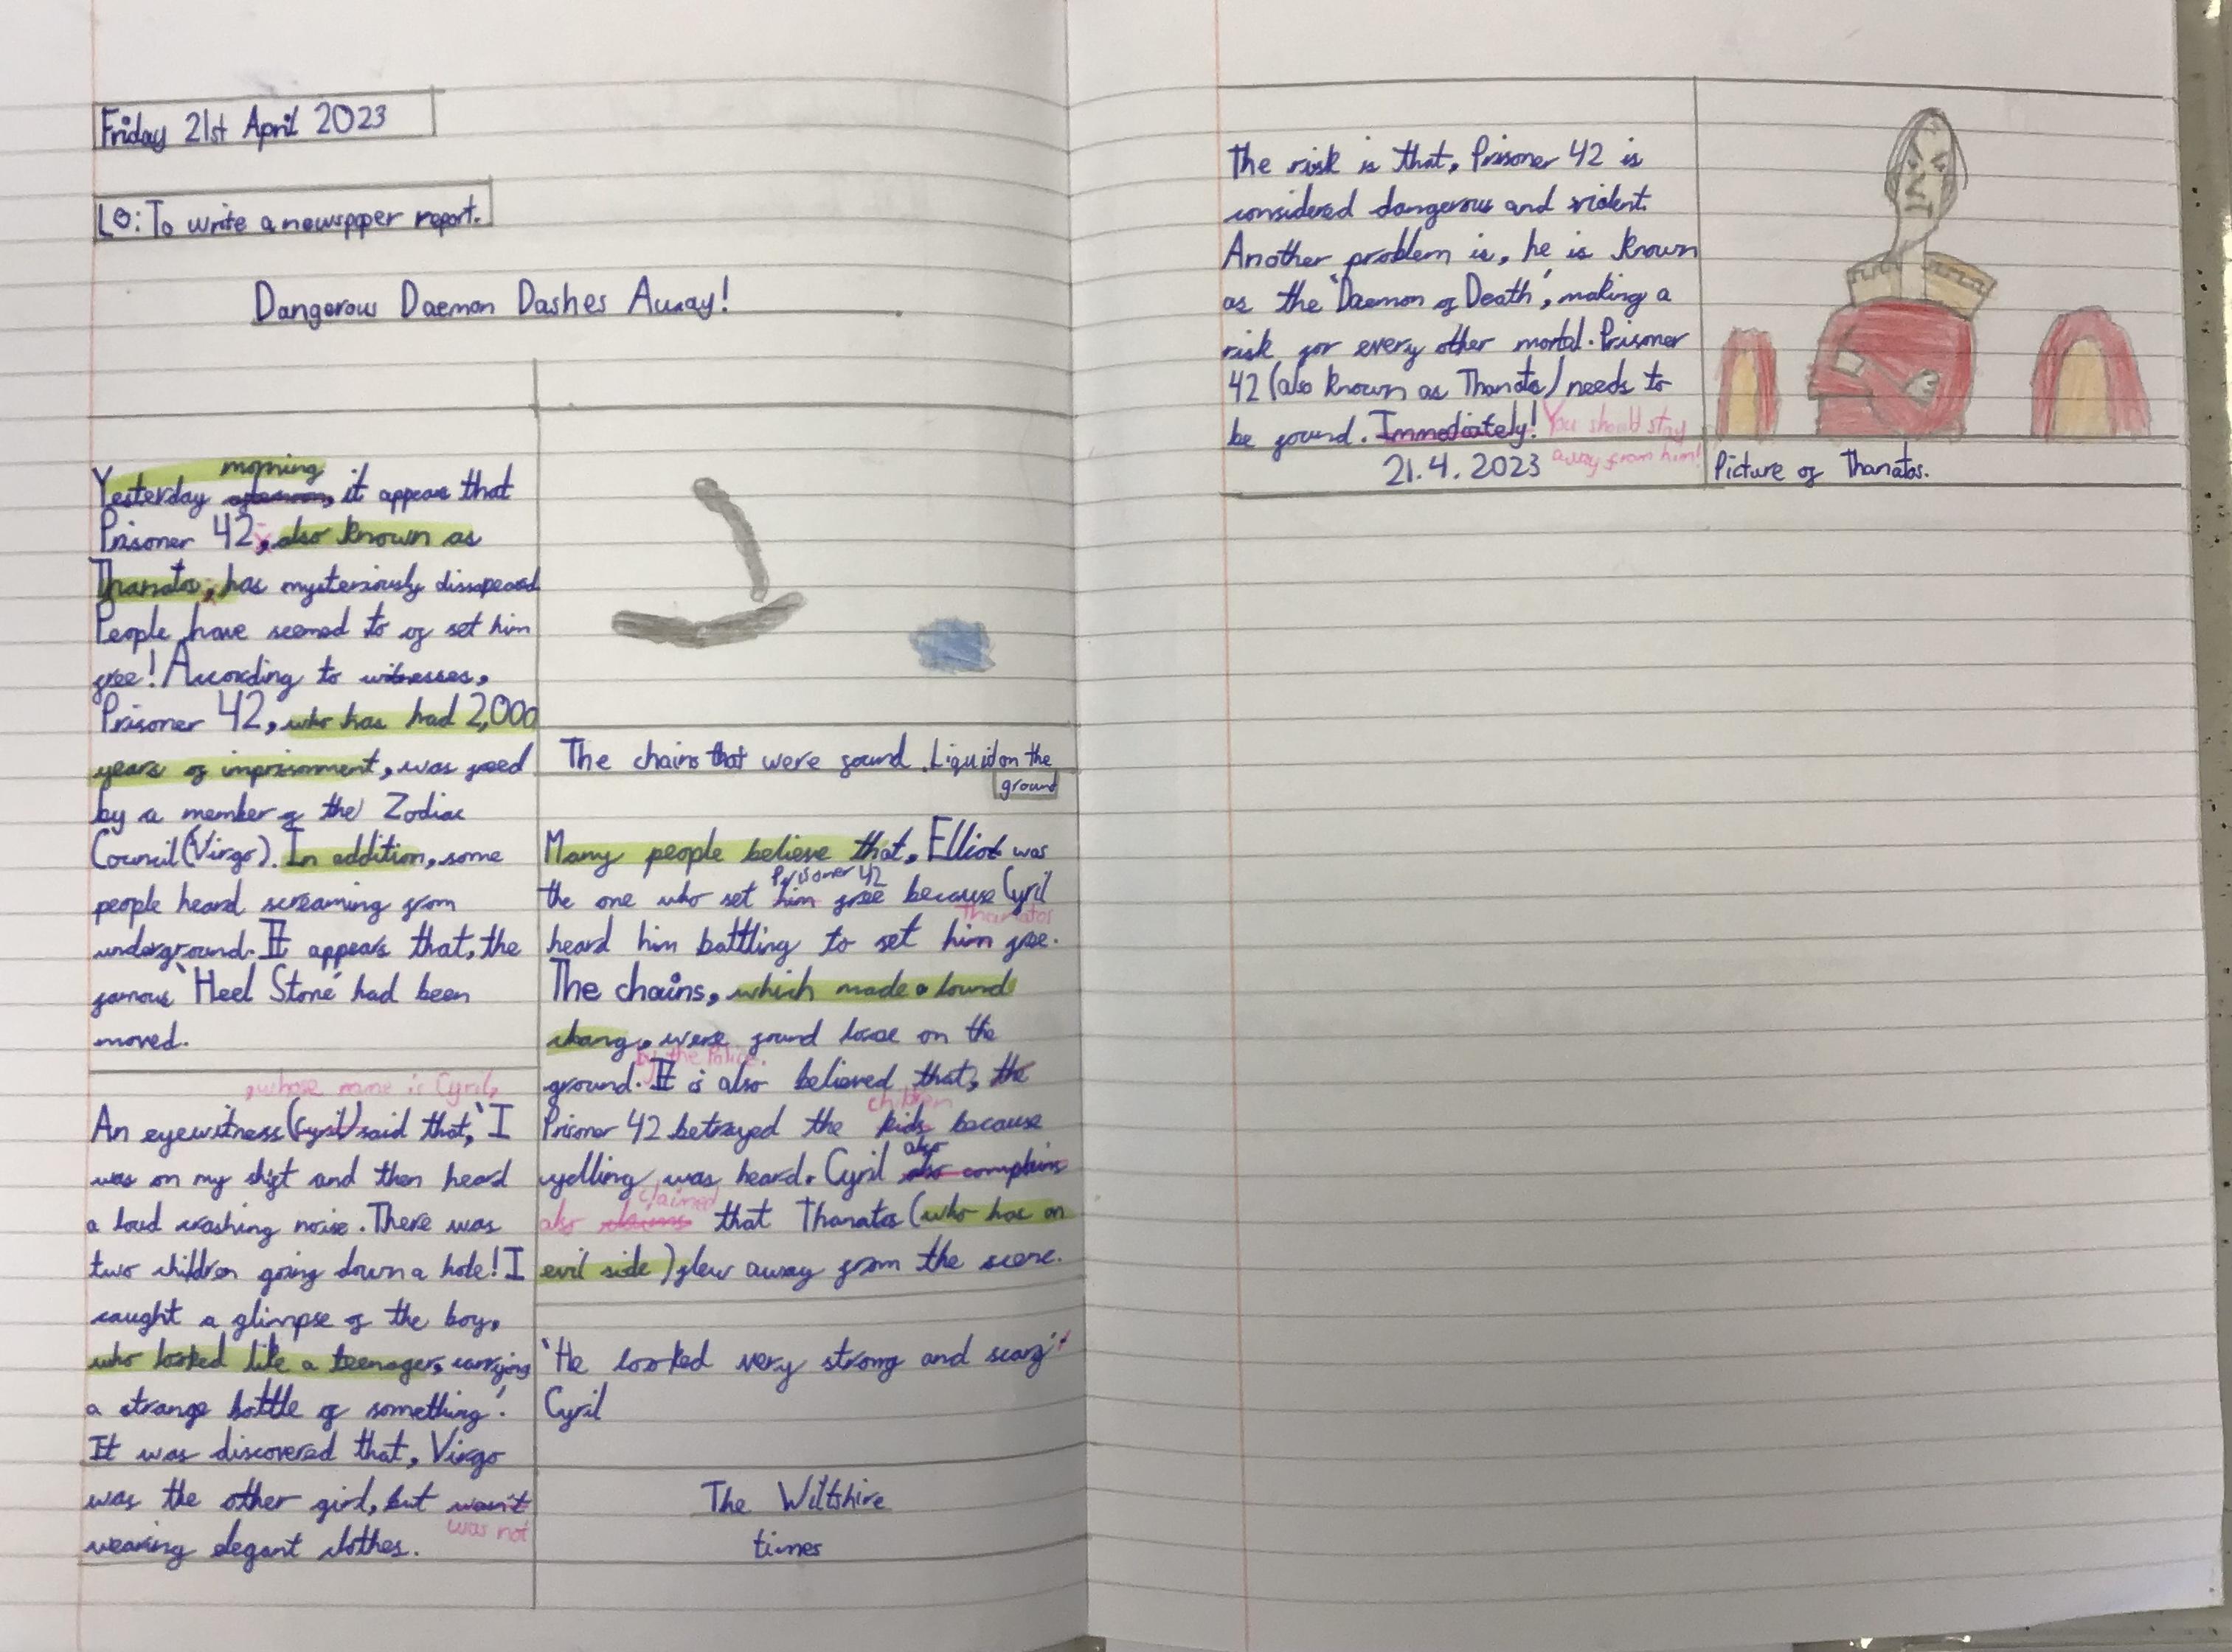 Friday 21st April 2023
LO: To write a newsppper report.
Dangerous Daemon Dashes Away!
morning
Yesterday afternoon, it appears that
Prisoner 42, also known as
Thanatos, has mysteriously dissapeared
People have seemed to of set him
free! According to witnesses,
Prisoner 42, who has had 2,000
years of imprisonment, was freed
by a member of the Zodiac
Council (Virgo). In addition, some
people heard screaming from
underground. It appears that, the
famous 'Heel Stone' had been
moved.
, whose name is Cyril,
An eyewitness (Cyril) said that, 'I
was on my shift and then heard
a loud crashing noise. There was
two children going down a hole! I
caught a glimpse of the boy,
who looked like a teenager, carrying
a strange bottle of something'.
It was discovered that, Virgo
was the other girl, but wasn't
was not
wearing elegant clothes.
The chains that were found. Liquid on the
ground
Many people believe that, Elliot was
Prisoner 42
the one who set him free because Cyril
Thanatos
heard him battling to set him free.
The chains, which made a lound
chang, were found loose on the
by the Police.
ground. It is also believed that, the
children
Prisoner 42 betrayed the kids because
also
yelling was heard. Cyril also complains
claimed
also claims that Thanatos (who has an
evil side) flew away from the scene.
'He looked very strong and scary'
Cyril
The Wiltshire
times
The risk is that, Prisoner 42 is
considered dangerous and violent.
Another problem is, he is known
as the 'Daemon of Death', making a
risk for every other mortal. Prisoner
42 (also known as Thanatos) needs to
be found. Immediately! You should stay
away from him!
21.4.2023
Picture of Thanatos.